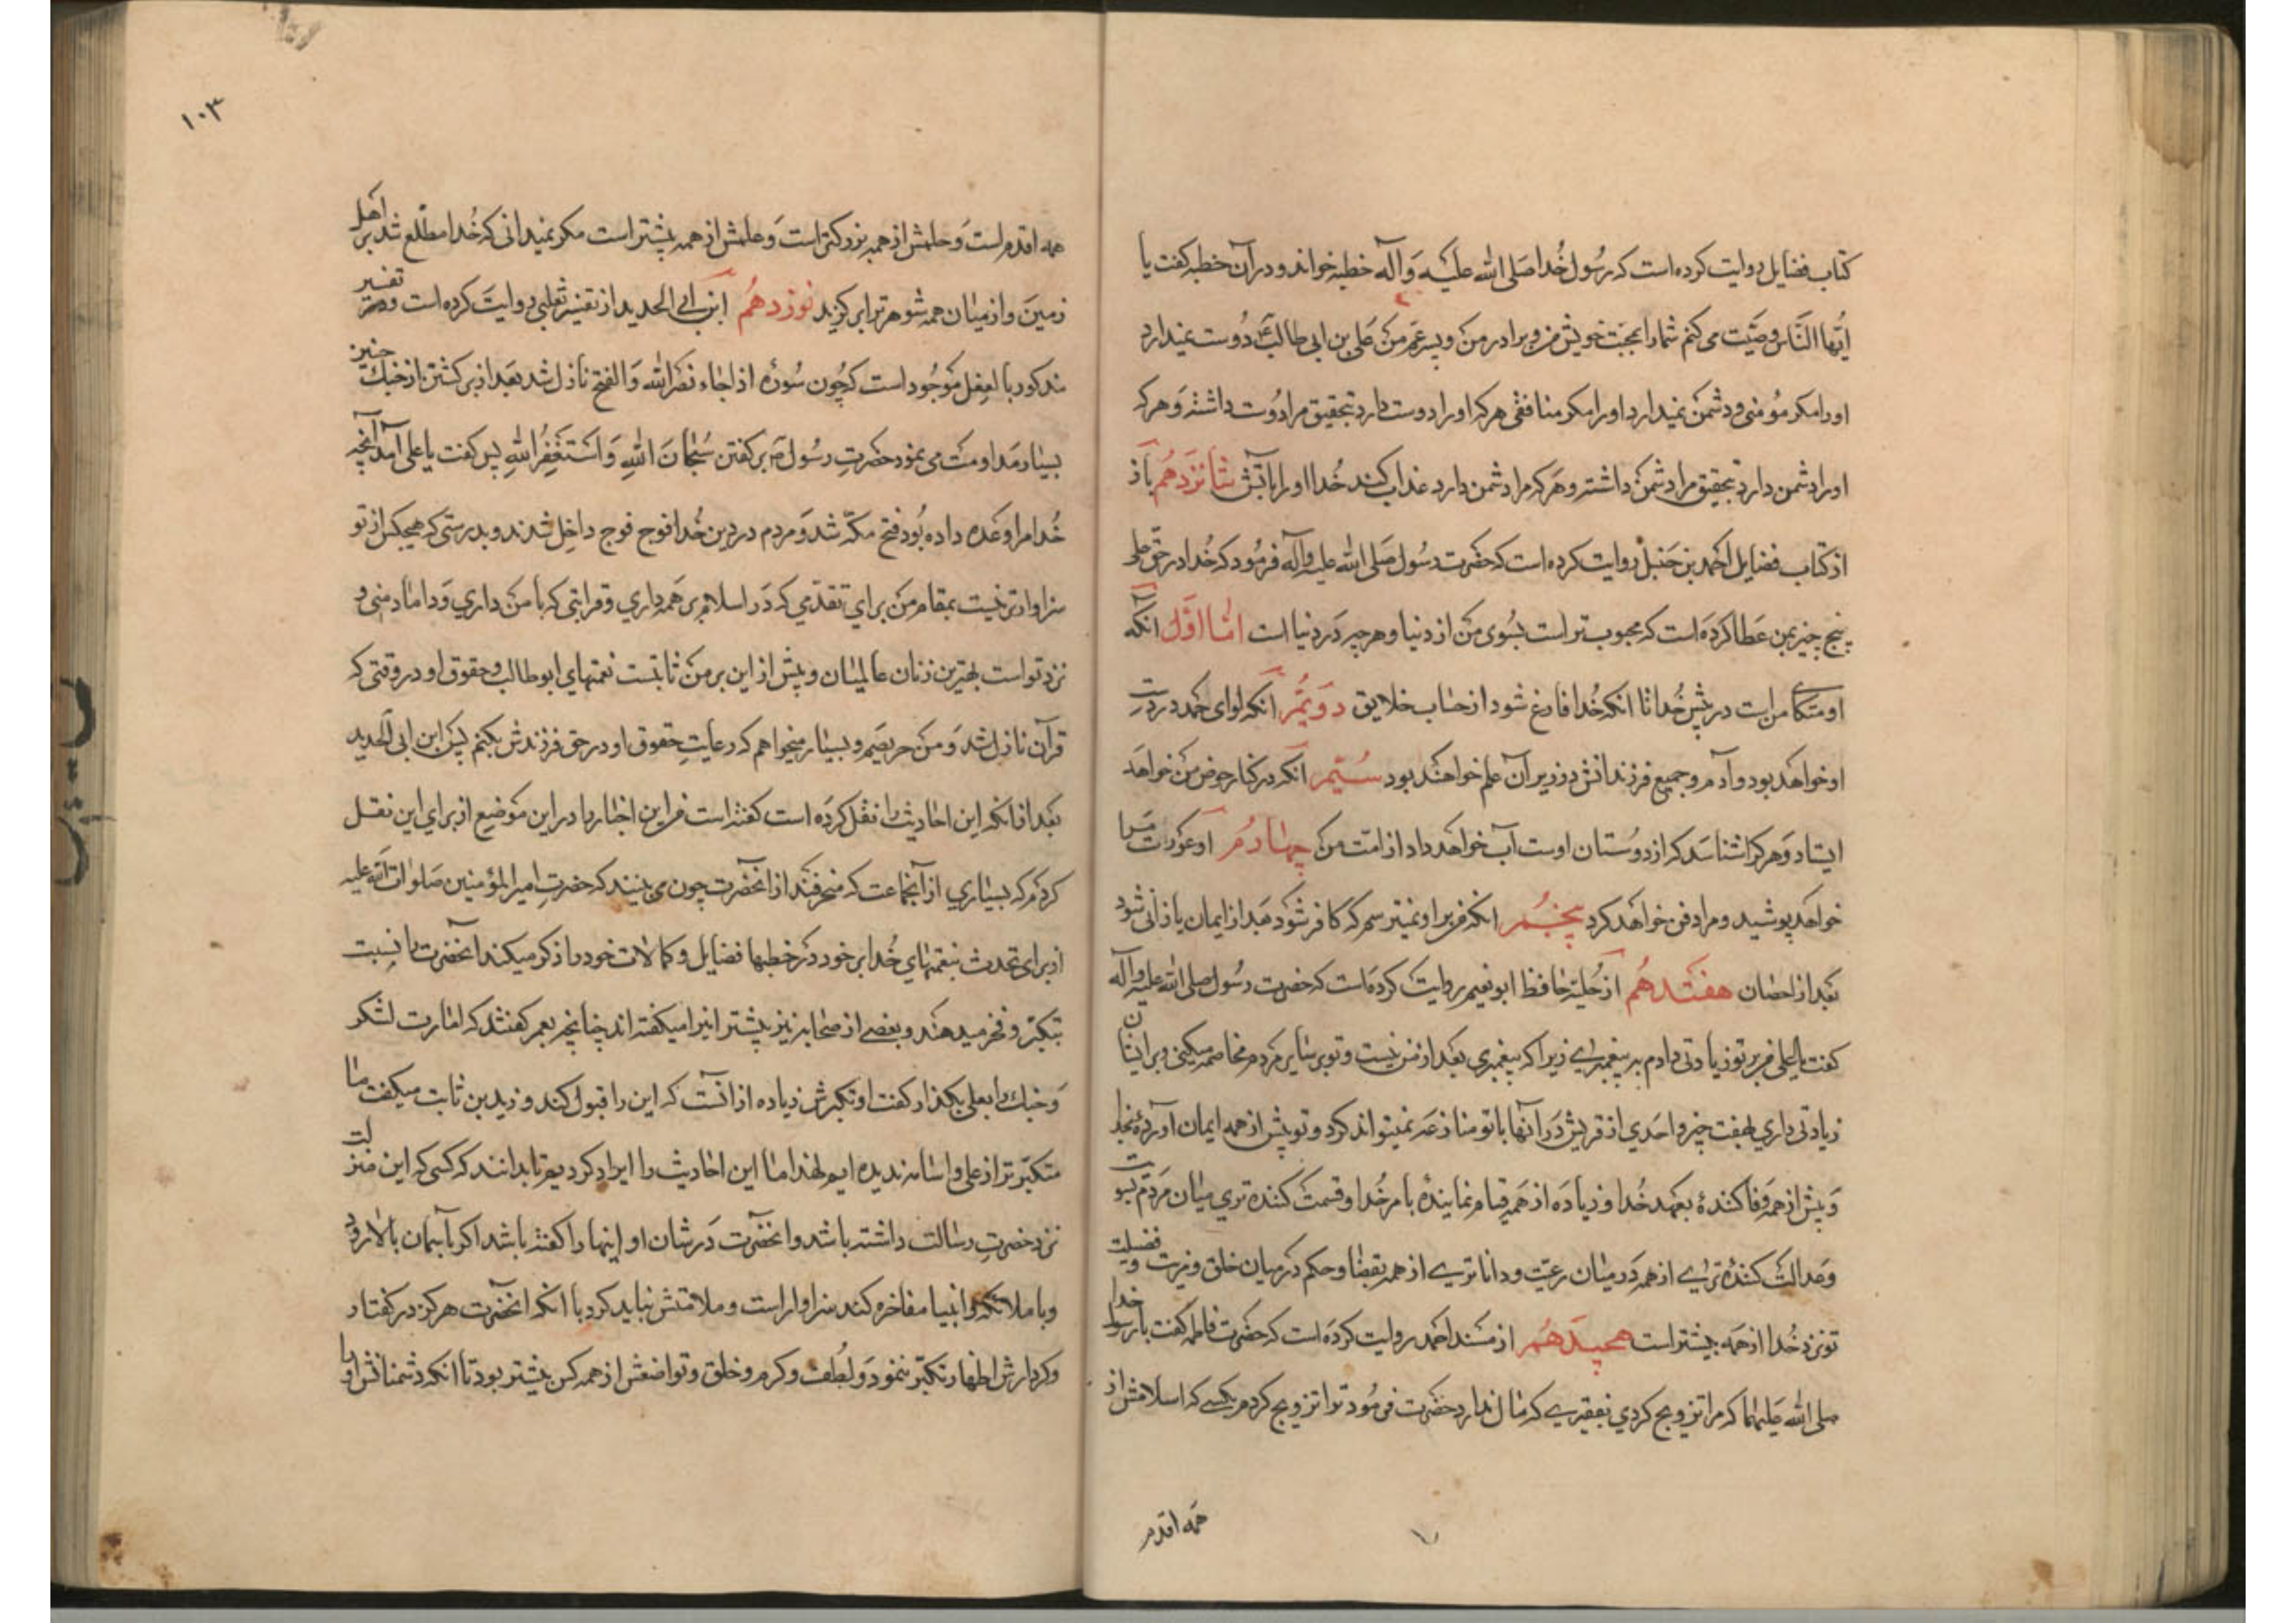 کتاب فضایل روایت کرده است که رسول خدا صلی الله علیه وآله خطبه خواند و در آن خطبه گفت یا
ایها الناس وصیّت می کنم شما را بمحبت خویش من و برادر من و پسر عم من علی بن ابی طالب ع دوست نمیدارد
اورا مکر مؤمنی و دشمن نمیدارد او را مکر منافقی هر که اورا دوست دارد بتحقیق مرا دوست داشته و هر که
اورا دشمن دارد بتحقیق مرا دشمن داشته و هر که مرا دشمن دارد عذاب کند خدا او را باتش شانزدهم باز
از کتاب فضایل احمد بن حنبل روایت کرده است که حضرت رسول صلی الله علیه وآله فرمود که خدا در حق علی
پنج چیز بمن عطا کرده است که محبوب تر است بسوی من از دنیا و هر چه در دنیا است اما اوّل آنکه
او متکای من است در پیش خدا تا انکه خدا فارغ شود از حساب خلایق دویّم انکه لوای حمد در دست
او خواهد بود و آدم و جمیع فرزندانش در زیر آن علم خواهند بود سیّم انکه در کنار حوض من خواهد
ایستاد و هر که را شناسد که از دوستان اوست آب خواهد داد از امت من چهارم او عورت مرا
خواهد پوشید و مرا دفن خواهد کرد پنجم انکه من بر او نمیترسم که کافر شود بعد از ایمان یا زانی شود
بعد از احصان هفتدهم از حلیة حافظ ابو نعیم روایت کرده است که حضرت رسول صلی الله علیه وآله
گفت یا علی من بر تو زیادتی دارم به پیغمبری زیرا که پیغمبری بعد از من نیست و تو بر سایر مردم مخاصمه میکنی و بر ایشان
زیادتی داری بهفت چیز و احدی از قریش در آنها با تو منازعه نمیتواند کرد و تو پیش از همه ایمان آورده بخدا
و پیش از همه وفا کنندۀ بعهد خدا و زیاده از همه قیام نمایندۀ بامر خدا و قسمت کننده تری میان مردم بسویت
وعدالت کنندۀ تری از همه در میان رعیّت و داناتری از همه بقضا و حکم در میان خلق و مزیت و فضیلت
تو نزد خدا از همه بیشتر است هجیدهم از مسند احمد روایت کرده است که حضرت فاطمه گفت یا رسول خدا
صلی الله علیهما که مرا تزویج کردی بفقیری که مال ندارد حضرت فرمود ترا تزویج کردم بکسی که اسلامش از
همه اقدم
۱۰۳
همه اقدم است و حلمش از همه بزرکتر است و علمش از همه بیشتر است مکر نمیدانی که خدا مطّلع شد بر اهل
زمین و از میان همه شوهر ترا برکزید نوزدهم ابن ابی الحدید از تفسیر ثعلبی روایت کرده است و در تفسیر
مذکور بالفعل موجود است که چون سورۀ اذا جاء نصر الله والفتح نازل شد بعد از برکشتن از جنک حنین
بسیار مداومت می نمود حضرت رسول ص بر کفتن سبحان الله و استغفر الله پس کفت یا علی آمد آنچه
خدا مرا وعده داده بود فتح مکّه شد و مردم در دین خدا فوج فوج داخل شدند و بدرستی که هیچکس از تو
سزاوارتر نیست بمقام من برای تقدّمی که در اسلام بر همه داری و قرابتی که با من داری و داماد منی و
نزد تو است بهترین زنان عالمیان و پیش از این بر من ثابتست نعمتهای ابو طالب و حقوق او در وقتی که
قرآن نازل شد و من حریصم و بسیار میخواهم که رعایت حقوق او در حق فرزندش بکنم پس ابن ابی الحدید
بعد از انکه این احادیث را نقل کرده است کفته است من این اخبار را در این موضع از برای این نقل
کردم که بسیاری از آنجماعت که منحرفند از انحضرت چون می بینند که حضرت امیر المؤمنین صلوات الله علیه
از برای تحدث بنعمتهای خدا بر خود در خطبها فضایل و کمالات خود را ذکر میکند آنحضرت را نسبت
بتکبّر و فخر میدهند و بعضی از صحابه نیز پیشتر انیرا میکفته اند چنانچه بعمر کفتند که امارت لشکر
و جنک را بعلی بکذار کفت او تکبرش زیاده از انست که این را قبول کند و زید بن ثابت میکفت ما
متکبّر تر از علی و اسامه ندیده ایم لهذا ما این احادیث را ایراد کردیم تا بدانند که کسی که این منزلت
نزد حضرت رسالت داشته باشد و انحضرت در شان او اینها را کفته باشد اکر بآسمان بالا رود
و با ملائکه و انبیا مفاخره کند سزاوار است و ملامتش نباید کرد با انکه انحضرت هرکز در کفتار
و کردارش اظهار تکبّر ننمود و لطف و کرم و خلق و تواضعش از همه کس بیشتر بود تا انکه دشمنانش او را